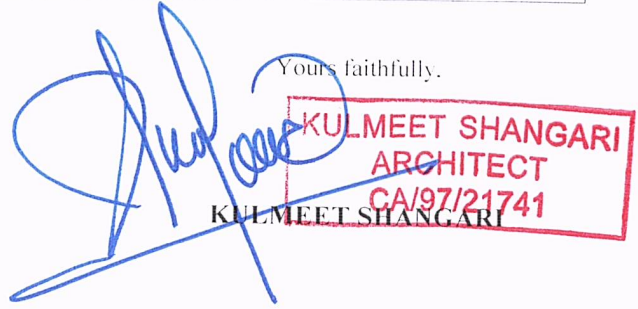 Yours faithfully.
KULMEET SHANGARI
ARCHITECT
CA/97/21741
KULMEET SHANGARI